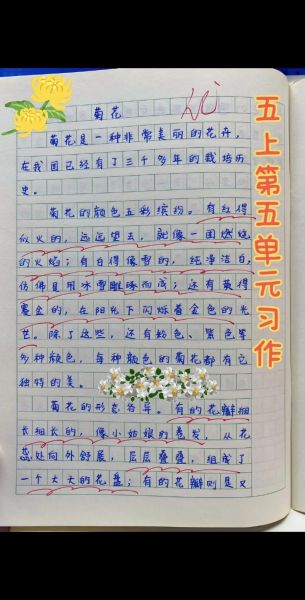 菊花
菊花是一种非常美丽的花卉，
在我国已经有了三千多年的栽培历
史。
菊花的颜色五彩缤纷。有红得
似火的，远远望去，就像一团燃烧
的火焰；有白得像雪的，纯净洁白，
仿佛是用冰雪雕琢而成；还有黄得
赛金的，在阳光下闪烁着金色的光
芒。除了这些，还有粉色、紫色等
多种颜色，每种颜色的菊花都有它
独特的美。
菊花的形态各异。有的花瓣细
长细长的，像小姑娘的卷发，从花
蕊处向外舒展，层层叠叠，组成了
一个大大的花盘；有的花瓣则是又
五上第五单元习作